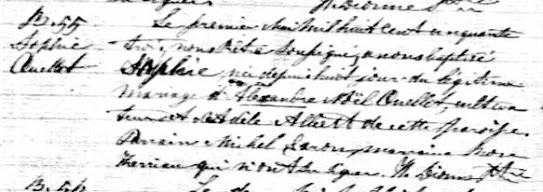 B. 55
Sophie
Ouellet
Le premier Mai mil huit cent cinquante
trois, nous Ptre soussigné avons baptisé
Sophie, née depuis huit jours du légitime
mariage d'Alexandre Noël Ouellet, cultiva
teur et Adèle Albert de cette paroisse.
Parrain Michel Caron, marraine
Theriau qui n'ont su signer. Th. Dionne Ptre
B. 56